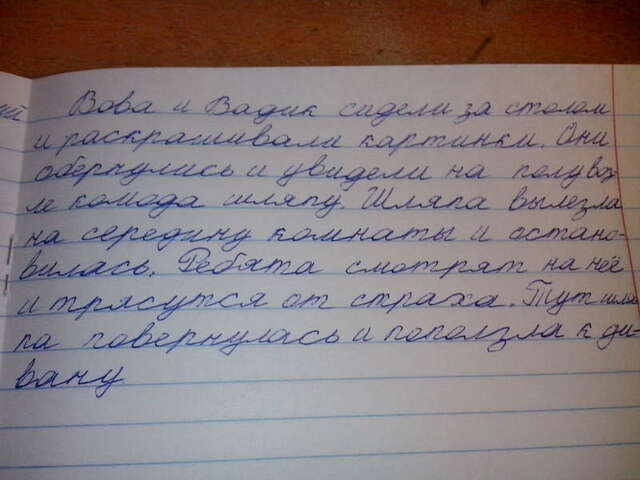 ий
Вова и Вадик сидели за столом
и раскрашивали картинки. Они
обернулись и увидели на полу воз-
ле комода шляпу. Шляпа вылезла
на середину комнаты и остано-
вилась. Ребята смотрят на неё
и трясутся от страха. Тут шля
па повернулась и поползла к ди-
вану